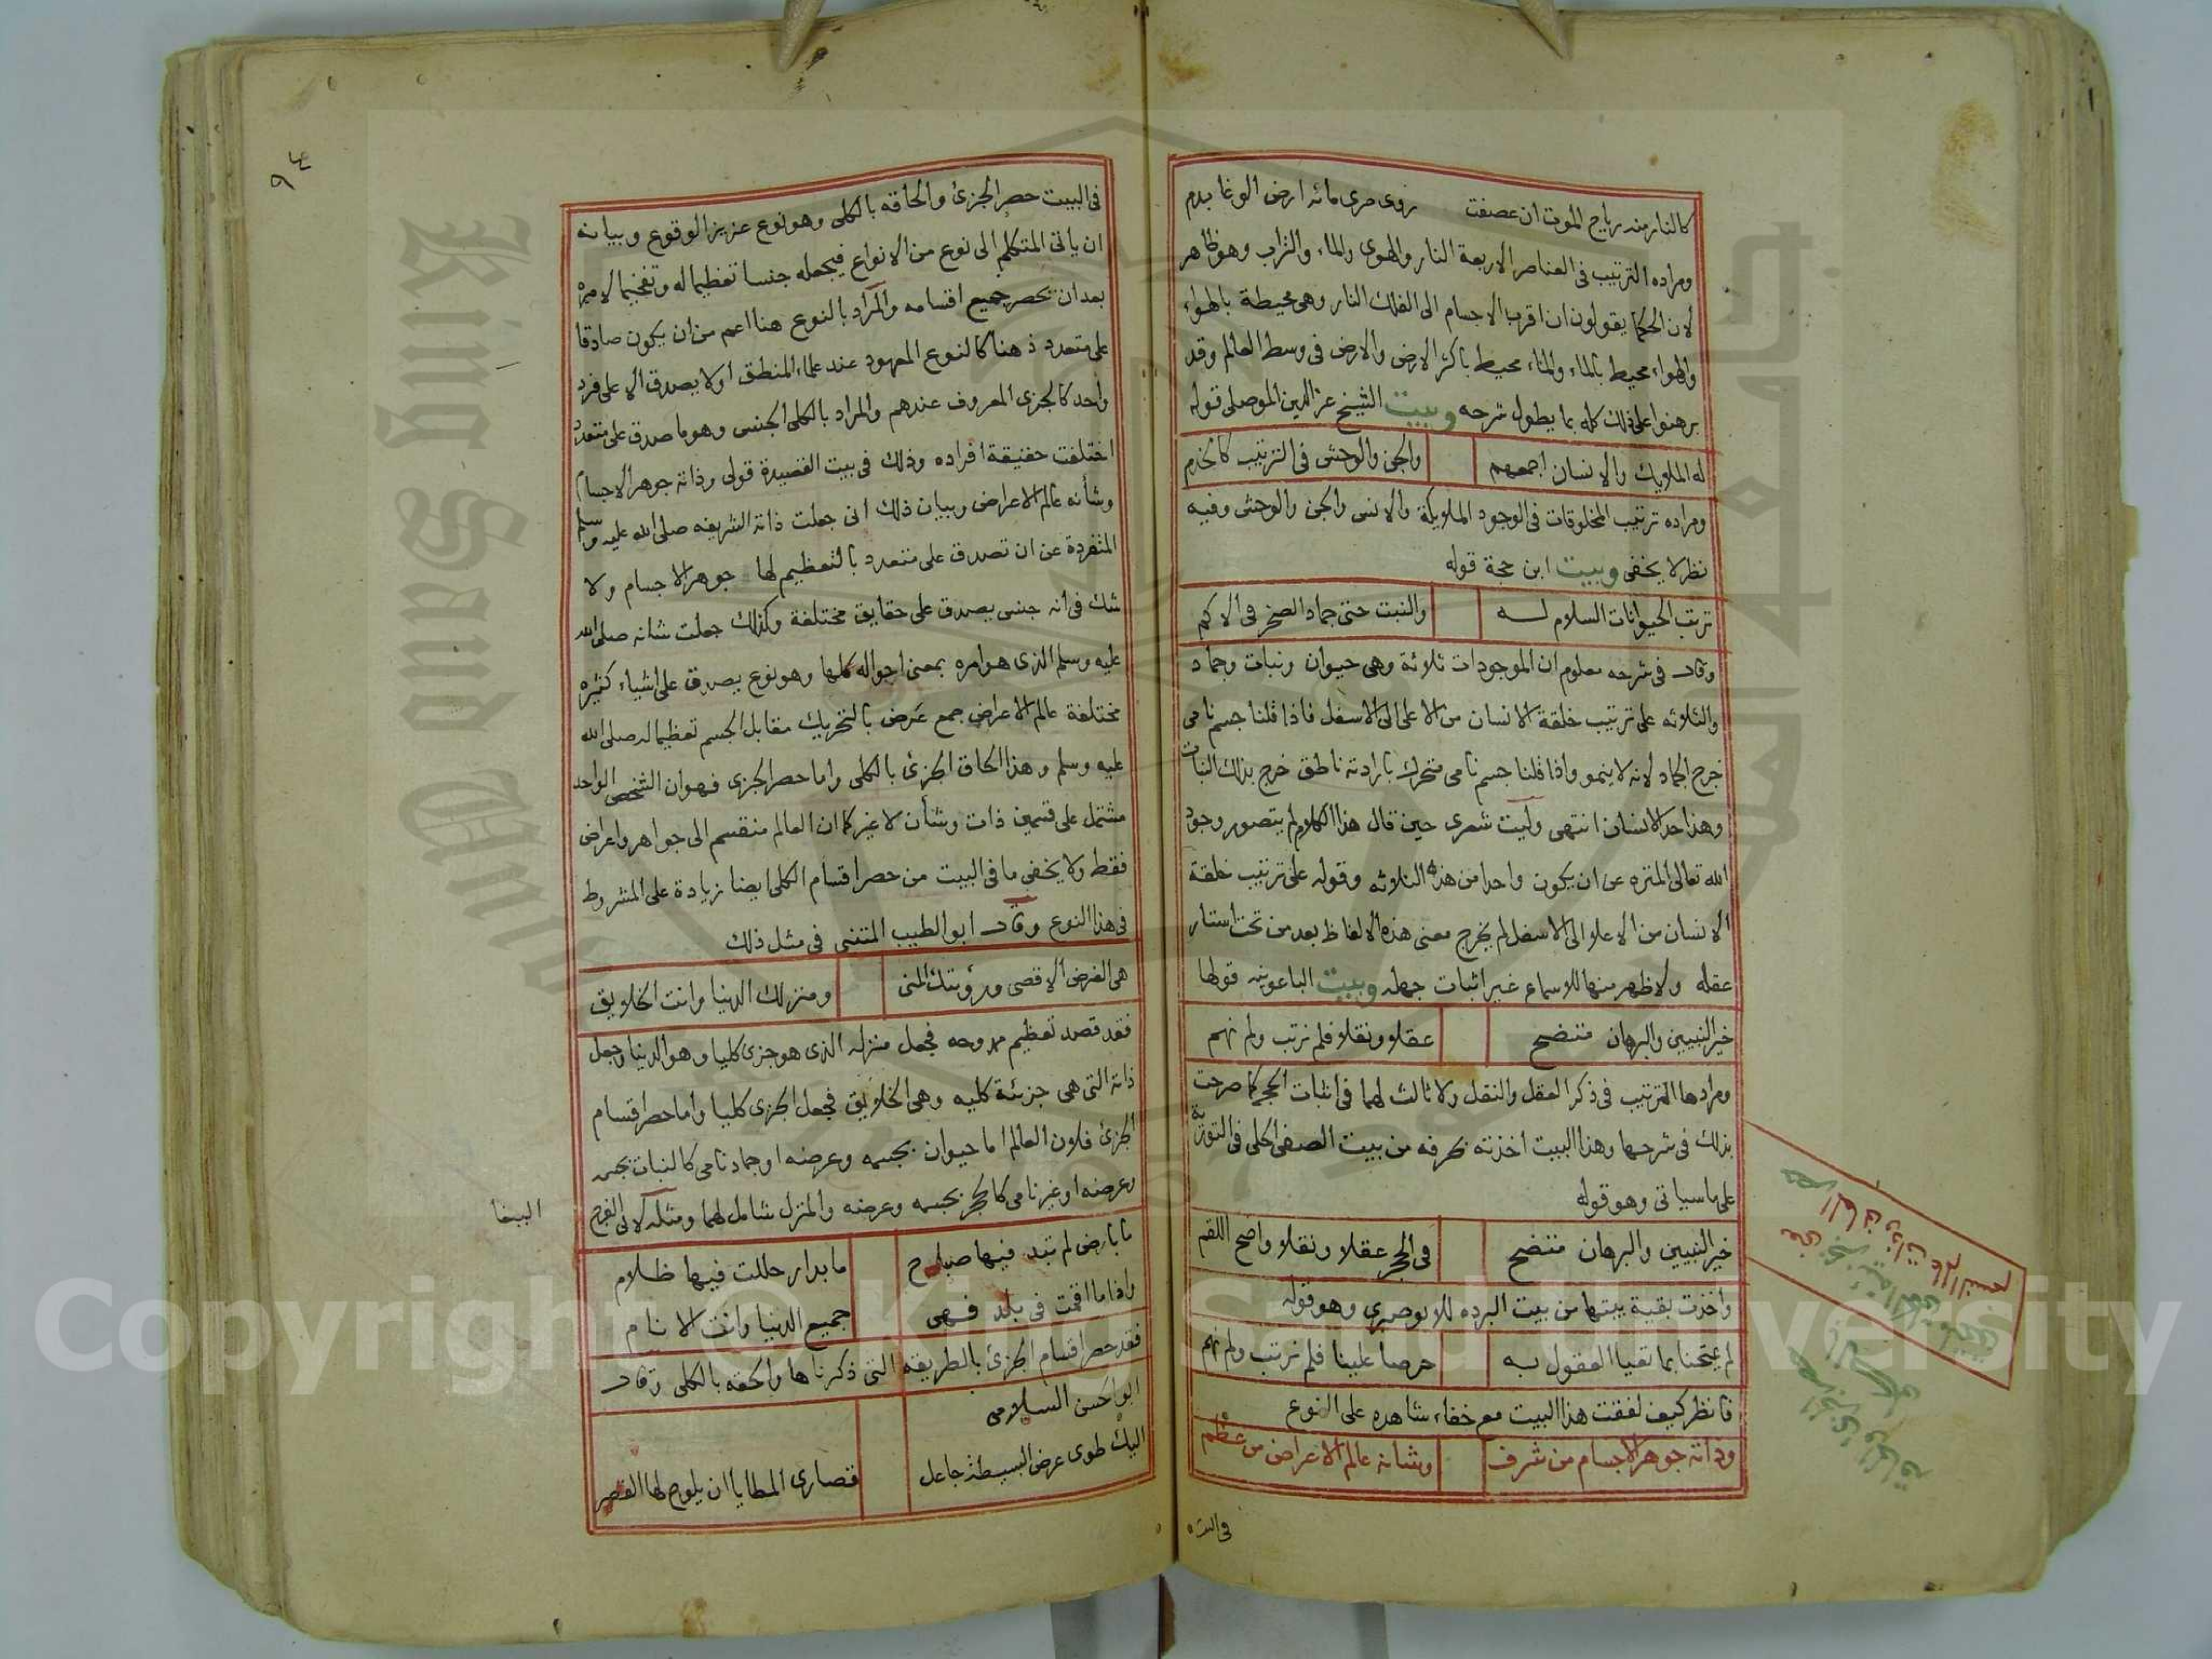 كالنار منه رياح الموت ان عصفت روى صرى مائه ارض الوغا بدم
ومراده الترتيب فى العناصر الاربعة النار والهوى والماء والتراب وهو ظاهر
لان الحكما يقولون ان اقرب الاجسام الى الفلك النار وهى محيطة بالهواء
والهواء محيط بالماء والماء محيط باكثر الارض والارض فى وسط العالم وقد
برهنوا على ذلك كله بما يطول شرحه وبيت الشيخ عز الدين الموصلى قوله
له الملايك والانسان اجمعهم والجن والوحش فى الترتيب كالخدم
ومراده ترتيب المخلوقات فى الوجود الملايكة والانس والجن والوحش وفيه
نظر لا يخفى وبيت ابن حجة قوله
ترتب الحيوانات السلام له والنبت حتى جماد الصخر فى الاكم
وقال فى شرحه معلوم ان الموجودات ثلاثة وهى حيوان ونبات وجماد
والثلاثه على ترتيب خلقة الانسان من الاعلى الى الاسفل فاذا قلنا جسم نامى
خرج الجماد لانه لا ينمو واذا قلنا جسم نامى متحرك بارادته ناطق خرج بذلك النبات
وهذا حد الانسان انتهى وليت شعرى حين قال هذا الكلام لم يتصور وجود
الله تعالى المنزه عن ان يكون واحدا من هذه الثلاثه وقوله على ترتيب خلقة
الانسان من الاعلا الى الاسفل لم يخرج معنى هذه الالفاظ بعد من تحت استار
عقله ولا ظهر منها للاسماع غير اثبات جهله وبيت الباعونيه قولها
خير النبيين والبرهان متضح عقلا ونقلا فلم نرتب ولم نهم
ومرادها الترتيب فى ذكر العقل والنقل ولا ثالث لهما فى اثبات الحجج كما صرحت
بذلك فى شرحها وهذا البيت اخذته طرفه من بيت الصفى الحلى فى التورية
على ما سياتى وهو قوله
خير النبيين والبرهان متضح فى الحجر عقلا ونقلا واضح اللقم
واخذت بقية بيتها من بيت البرده للابوصيرى وهو قوله
لم يمتحنا بما تعيا العقول به حرصا علينا فلم نرتب ولم نهم
فانظر كيف لفقت هذا البيت مع خفاء شاهده على النوع
وذاته جوهر الاجسام من شرف وشانه عالم الاعراض من عظم
فى البيت
٩٤
فى البيت حصر الجزئ والحاقه بالكلى وهو نوع عزيز الوقوع وبيانه
ان ياتى المتكلم الى نوع من الانواع فيجعله جنسا تعظيما له وتفخيما لامره
بعد ان يحصر جميع اقسامه والمراد بالنوع هنا اعم من ان يكون صادقا
على متعدد ذهنا كالنوع المعهود عند علماء المنطق او لا يصدق الا على فرد
واحد كالجزى المعروف عندهم والمراد بالكلى الجنسى وهو ما صدق على متعدد
اختلفت حقيقة افراده وذلك فى بيت القصيدة قولى وذاته جوهر الاجسام
وشأنه عالم الاعراض وبيان ذلك انى جعلت ذاته الشريفه صلى الله عليه وسلم
المنفردة عن ان تصدق على متعدد بالتعظيم لها جوهر الاجسام ولا
شك فى انه جنس يصدق على حقايق مختلفة وكذلك جعلت شانه صلى الله
عليه وسلم الذى هو امره بمعنى احواله كلها وهو نوع يصدق على اشياء كثيره
مختلفة عالم الاعراض جمع عَرَض بالتحريك مقابل الجسم تعظيما له صلى الله
عليه وسلم وهذا الحاق الجزئ بالكلى واما حصر الجزى فهو ان الشخص الواحد
مشتمل على قسمين ذات وشأن لا غير كما ان العالم منقسم الى جواهر واعراض
فقط ولا يخفى ما فى البيت من حصر اقسام الكلى ايضا زيادة على المشروط
فى هذا النوع وقال ابو الطيب المتنبى فى مثل ذلك
هى الغرض الاقصى ورؤيتك المنى ومنزلك الدنيا وانت الخلايق
فقد قصد تعظيم ممدوحه فجعل منزله الذى هو جزى كليا وهو الدنيا وجعل
ذاته التى هى جزئة كليه وهى الخلايق فجعل الجزى كليا واما حصر اقسام
الجزئ فلان العالم اما حيوان بجسمه وعرضه او جماد نامى كالنبات بجسمه
وعرضه او غير نامى كالحجر بجسمه وعرضه والمنزل شامل لهما ومثله لابى الفرج
الببغا
ما بارض لم تبد فيها صباح ما بدار حللت فيها ظلام
واذا ما اقمت فى بلد فهى جميع الدنيا وانت الانام
فقد حصر اقسام الجزئ بالطريقه التى ذكرناها والحقه بالكلى وقال
ابو الحسن السلامى
اليك طوى عرض البسيطة جاعل قصارى المطايا ان يلوح لها القصر
King Saud University
Copyright © King Saud University